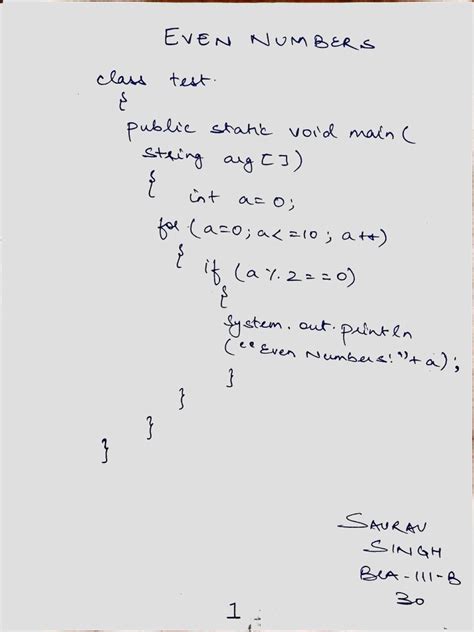 EVEN NUMBERS
class test.
{
public static void main (
string arg [ ] )
{ int a=0;
for (a=0; a<=10; a++)
{ if (a % 2 = = 0)
{
System. out. println
("Even Numbers:"+ a);
}
}
}
}
SAURAV
SINGH
BCA-III-B
30
1